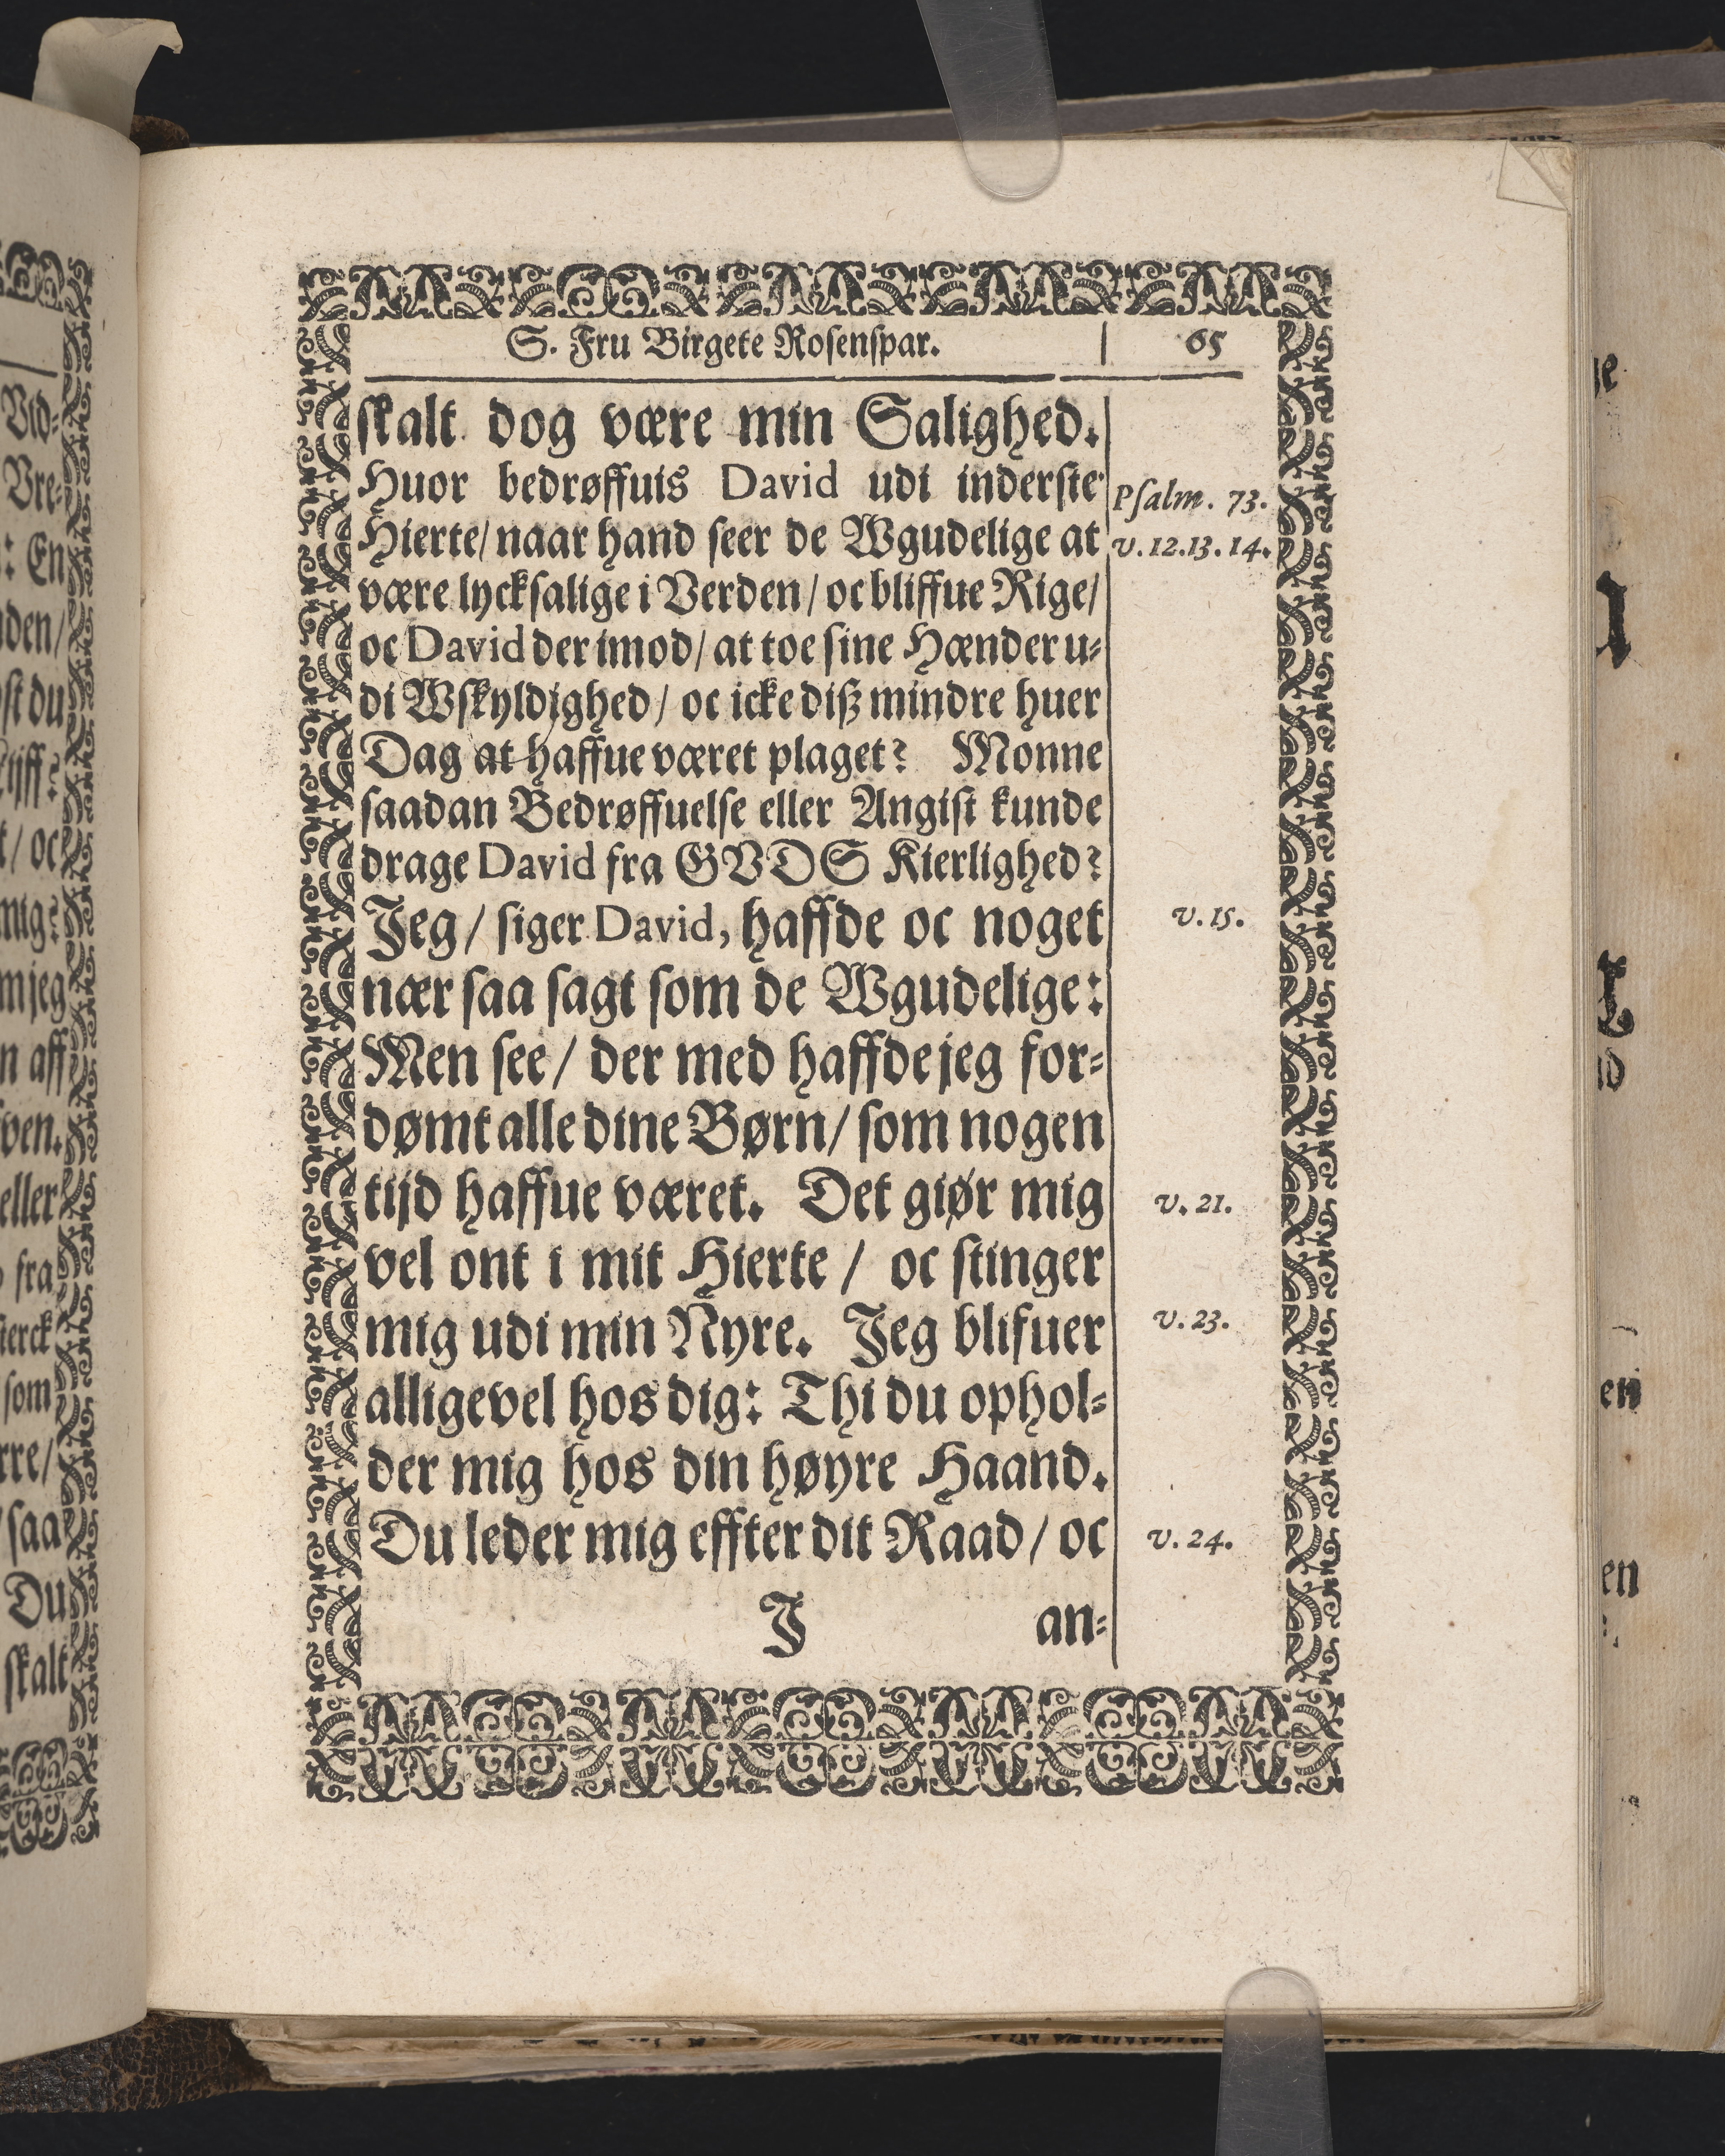 S. Fru Birgete Rosenspar. | 65
skalt dog være min Salighed.
Huor bedrøffuis David udi inderste
Psalm. 73.
Hierte/ naar hand seer de Wgudelige at
v. 12.13.14.
være lycksalige i Verden/ oc bliffue Rige/
oc David der imod/ at toe sine Hænder u-
di Wskyldighed/ oc icke diß mindre huer
Dag at haffue været plaget? Monne
saadan Bedrøffuelse eller Angist kunde
drage David fra GVDS Kierlighed?
Jeg/ siger David, haffde oc noget
v. 15.
nær saa sagt som de Wgudelige:
Men see/ der med haffde jeg for-
dømt alle dine Børn/ som nogen
tijd haffue været. Det giør mig
v. 21.
vel ont i mit Hierte / oc stinger
mig udi min Nyre. Jeg blifuer
v. 23.
alligevel hos dig: Thi du ophol-
der mig hos din høyre Haand.
Du leder mig effter dit Raad/ oc
v. 24.
J an-
Vid-
Vre-
: En
den/
st du
t/ oc
mig?
m jeg
n aff
ven.
eller
fra
ierck
som
rre/
saa
Du
skalt
en
en